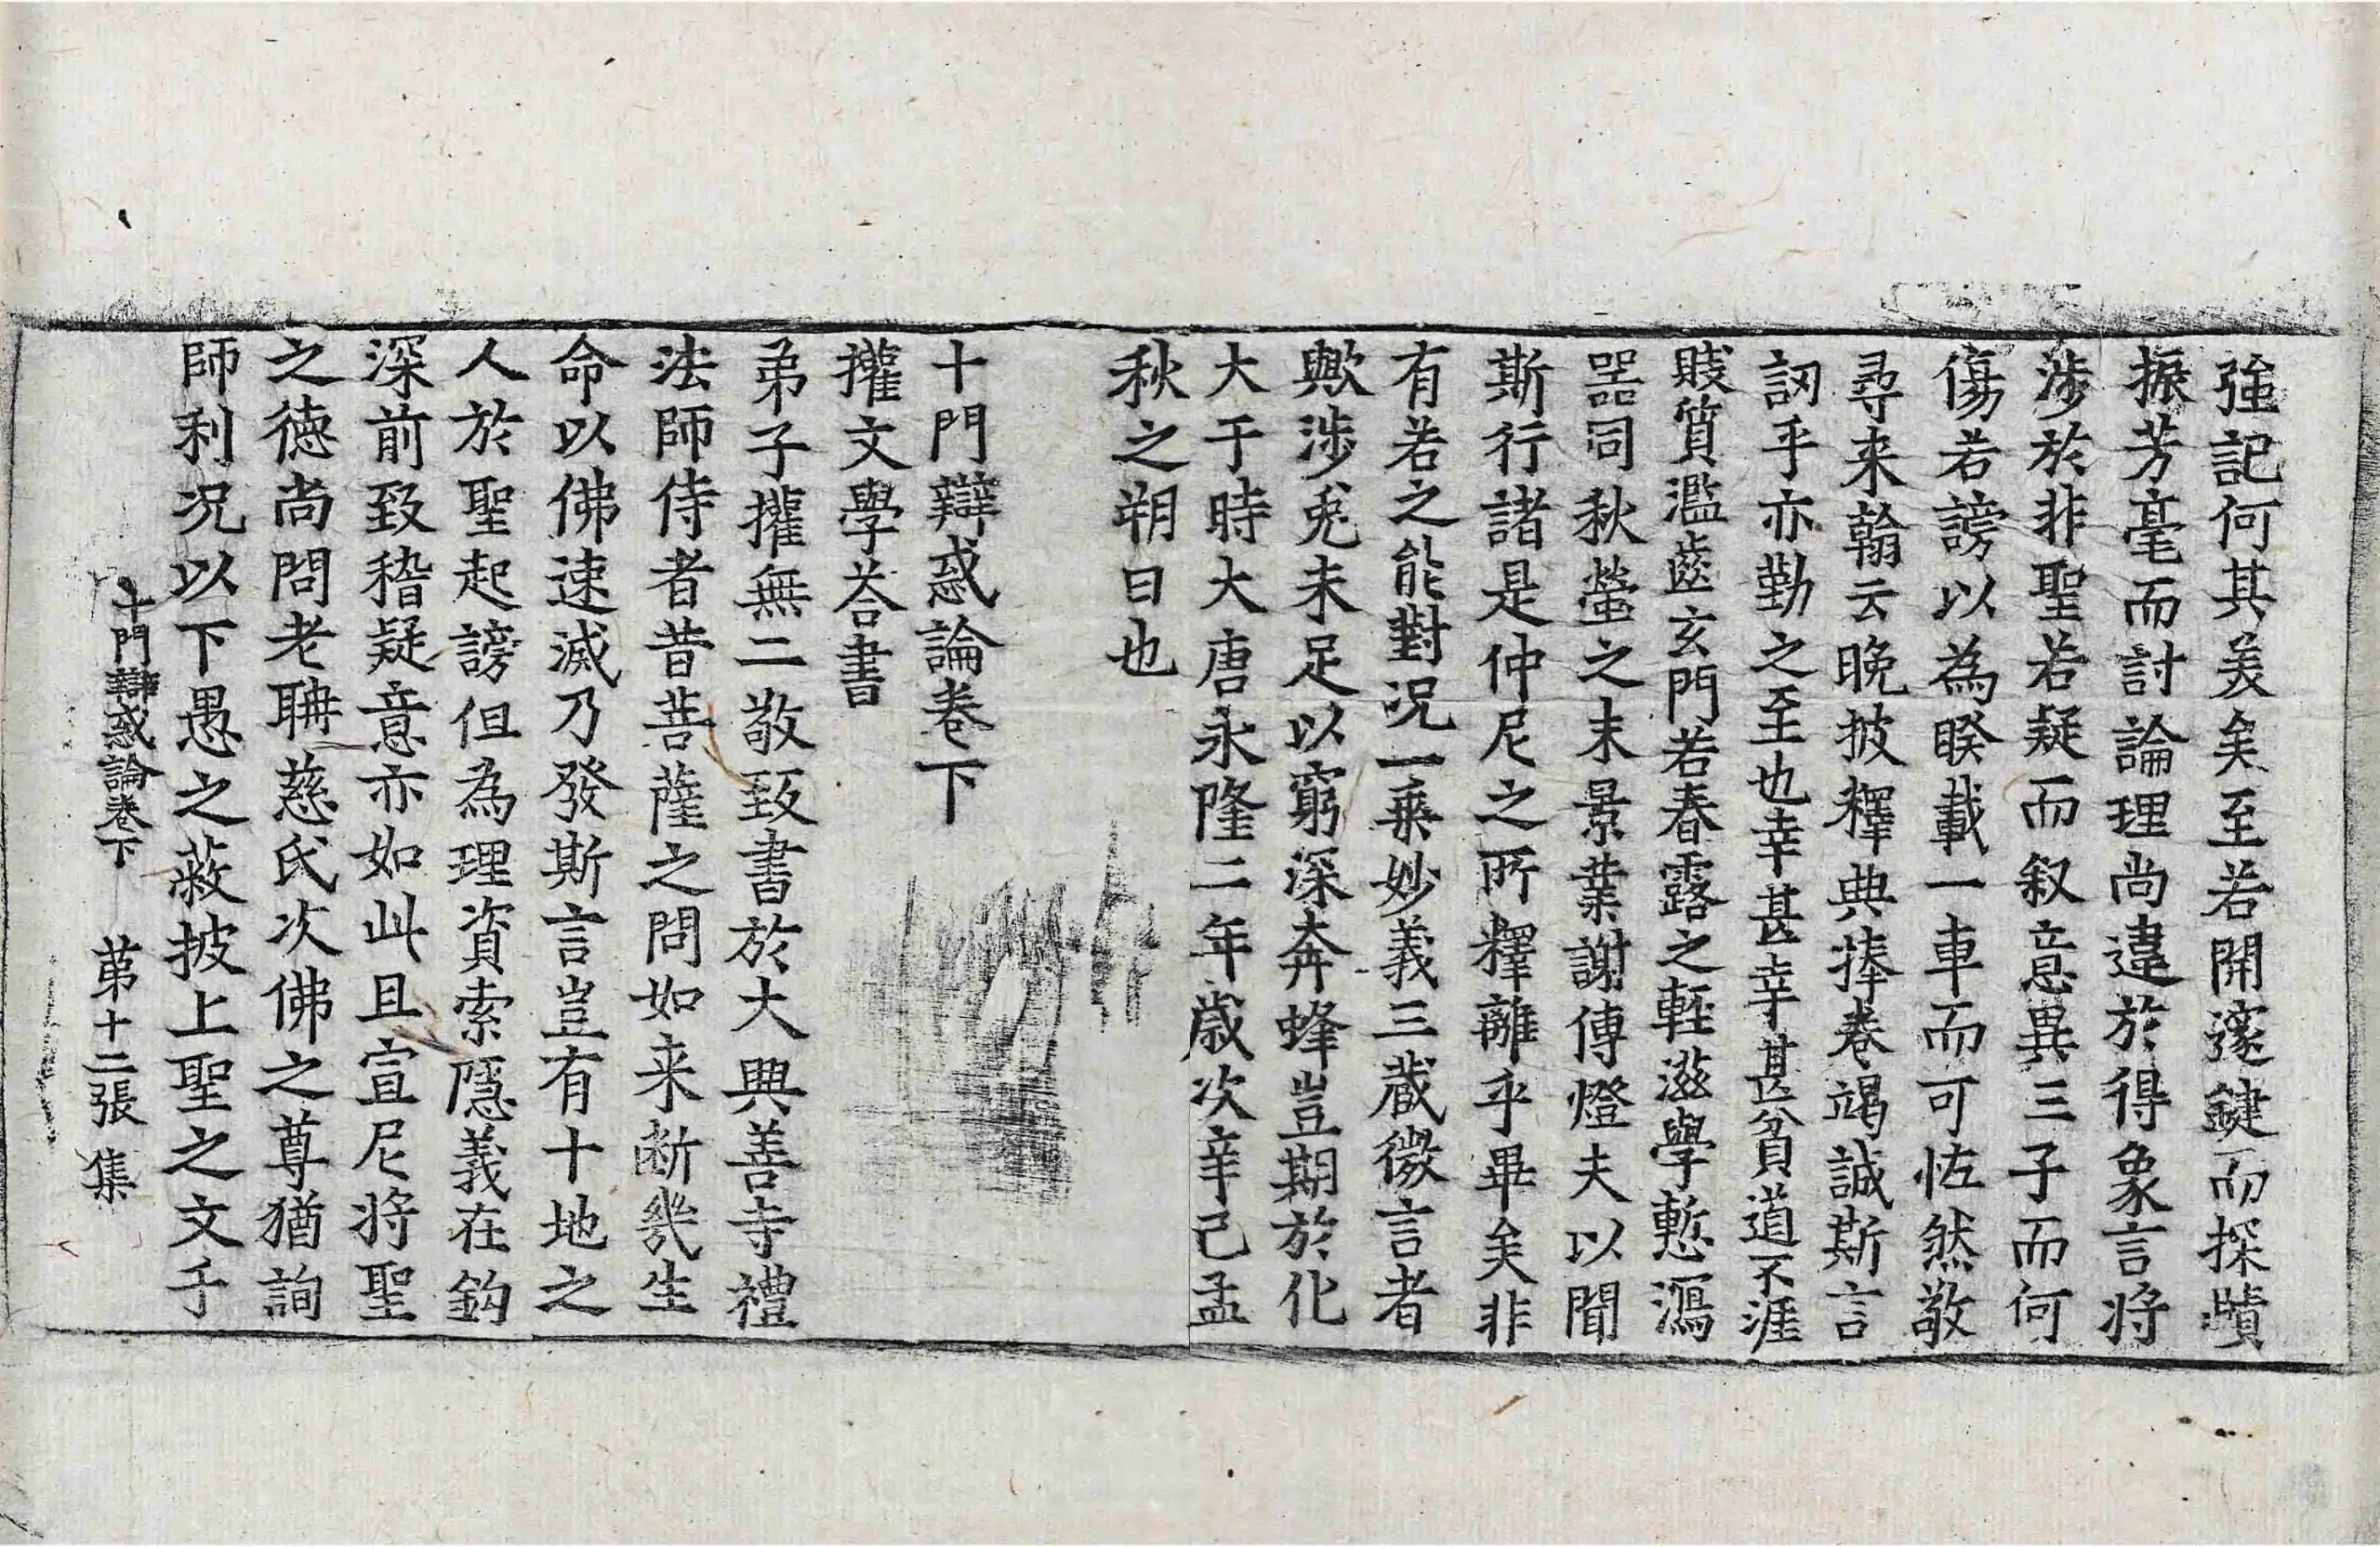 強記何其羙矣至若開邃鍵而探賾
振芳毫而討論理尚違於得象言將
渉於非聖若疑而叙意異三子而何
傷若謗以為睽載一車而可恠然敬
尋来翰云晩披釋典捧卷竭誠斯言
訒乎亦勤之至也幸甚幸甚貧道不涯
賎質濫齒玄門若春露之輕滋學慙瀉
噐同秋螢之末景業謝傳燈夫以聞
斯行諸是仲尼之所釋離乎畢矣非
有若之能對况一乗妙義三蔵微言者
歟渉兎未足以窮深奔蜂豈期於化
大于時大唐永隆二年歳次辛己孟
秋之朔日也
十門辯惑論卷下
攉文學荅書
弟子攉無二敬致書於大興善寺禮
法師侍者昔菩薩之問如来断幾生
命以佛速滅乃發斯言豈有十地之
人於聖起謗但為理資索隱義在鈎
深前致稽疑意亦如此且宣尼将聖
之德尚問老聃慈氏次佛之尊猶詢
師利况以下愚之蔽披上聖之文乎
十門辯惑論卷下 苐十二張 集